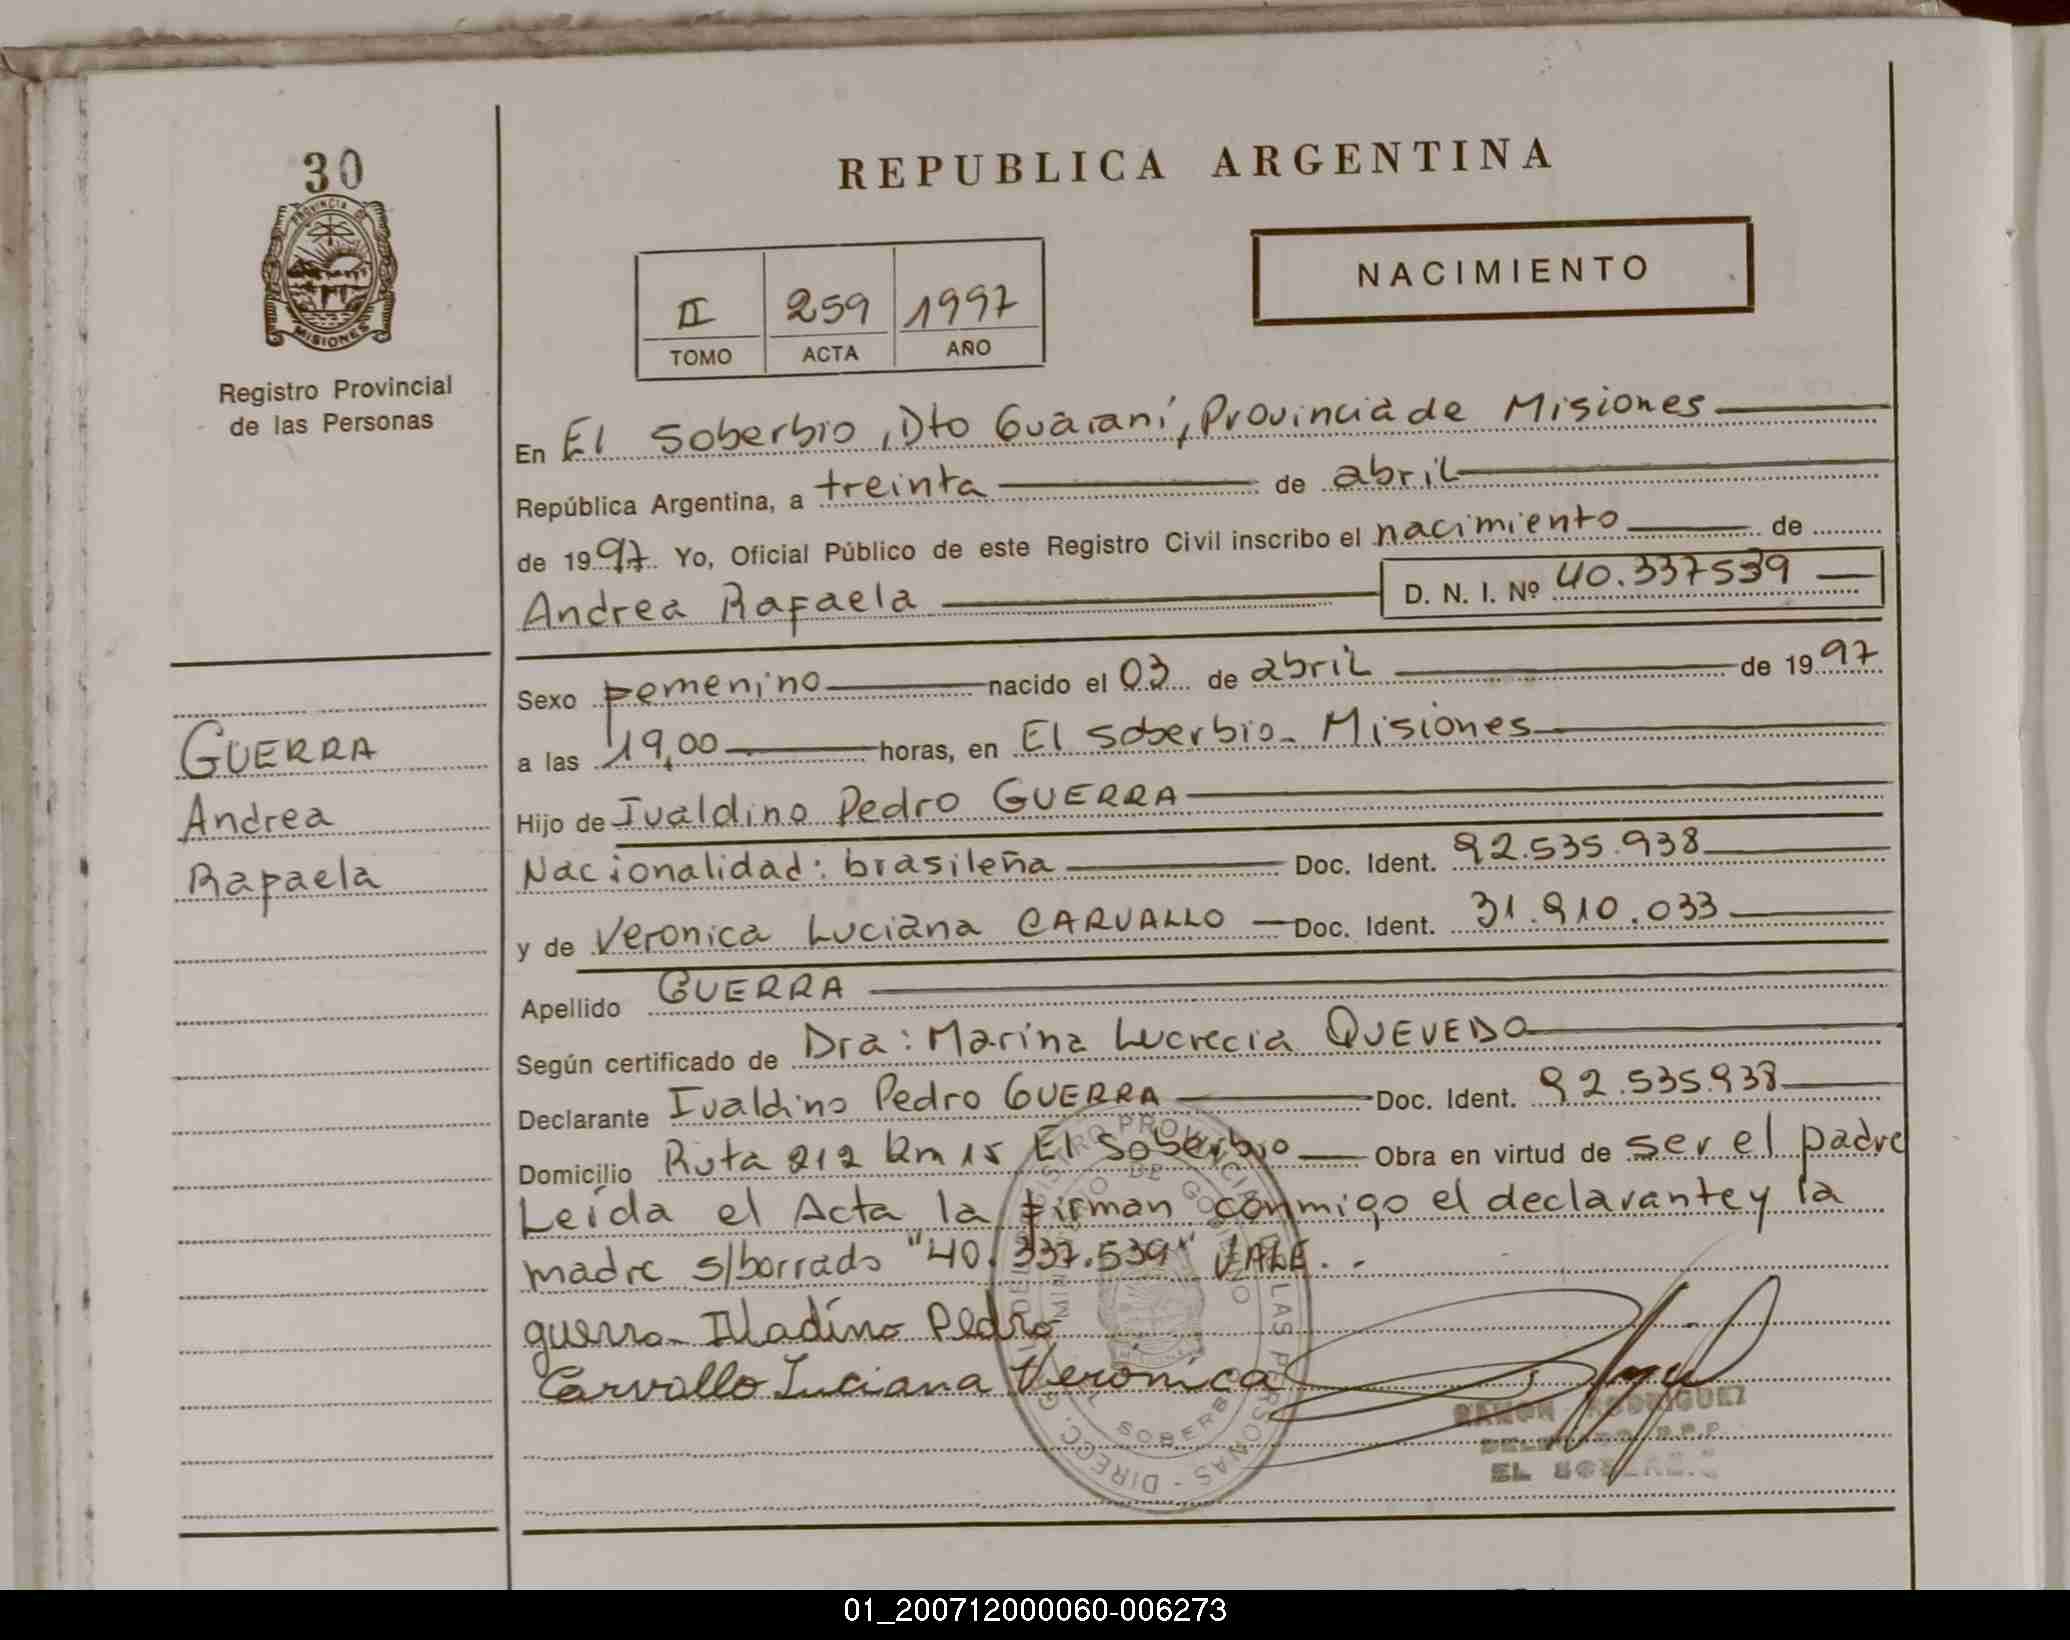 30
PROVINCIA DE
MISIONES
Registro Provincial
de las Personas
GUERRA
Andrea
Rafaela
REPUBLICA ARGENTINA
NACIMIENTO
II 259 1997
TOMO ACTA AÑO
En El Soberbio, Dto Guaraní, Provincia de Misiones
República Argentina, a treinta de abril
de 1997 Yo, Oficial Público de este Registro Civil inscribo el nacimiento de
Andrea Rafaela D. N. I. Nº 40.337539
Sexo femenino nacido el 03 de abril de 1997
a las 19,00 horas, en El Soberbio - Misiones
Hijo de Ivaldino Pedro GUERRA
Nacionalidad: brasileña Doc. Ident. 92.535.938
y de Veronica Luciana CARVALLO Doc. Ident. 31.910.033
Apellido GUERRA
Según certificado de Dra: Marina Lucrecia QUEVEDO
Declarante Ivaldino Pedro GUERRA Doc. Ident. 92.535.938
Domicilio Ruta 212 Km 15 El Soberbio Obra en virtud de ser el padre
Leída el Acta la firman conmigo el declarante y la
madre s/borrado "40.337.539" VALE. -
guerra Pedro
Carvallo Luciana Veronica
RAMON RODRIGUEZ
EL
01_200712000060-006273